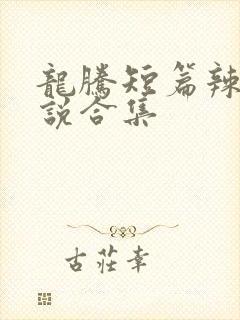 龍騰短篇辣
說合集
古莊幸